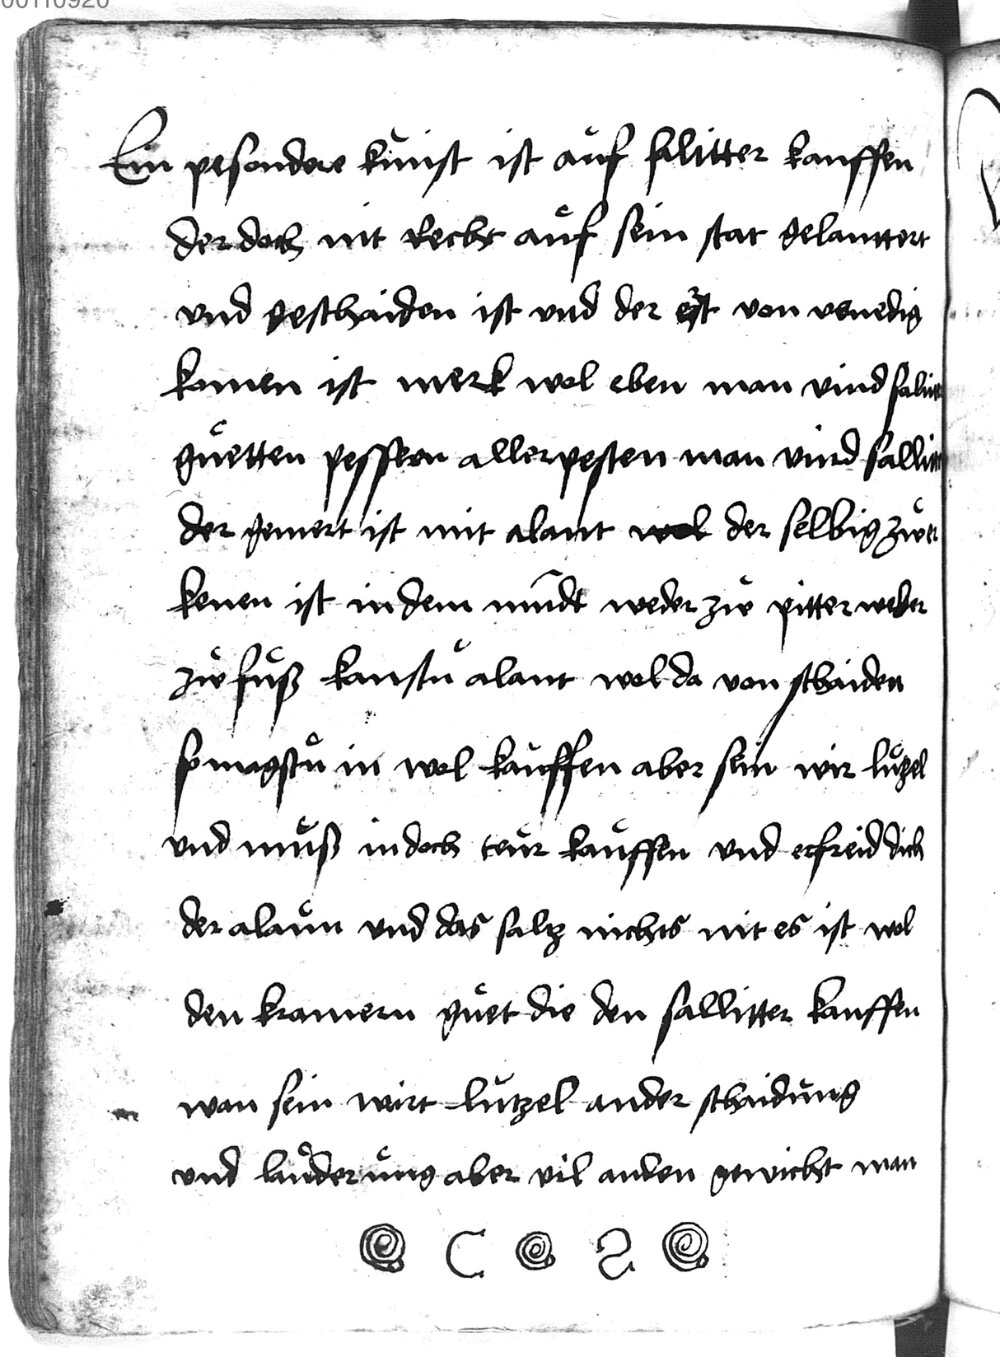 00110920
Ein pesondere kůnst ist aůf salitter kauffen
der doch nit Recht aůf sein stat gelauttert
vnd geschaiden ist vnd der erst von venedig
komen ist merk wol eben man vind salitter
gůetten pessern aller pesten man vind sallitter
der gemert ist mit alant der selbig zwer
kenen ist in dem mūdt weder zw pitter weder
zw sůß kanstů alant wol da von schaiden
so magstů in wol kaůffen aber sein wir lůtzel
vnd můß in doch teůr kaůffen vnd erfreid dich
der alaůn vnd das saltz nichts nit es ist wol
den kramern gůet die den sallitter kauffen
wan sein wirt lützel ander schaidůng
vnd laůderůng aber vil anden gewicht man
C 2